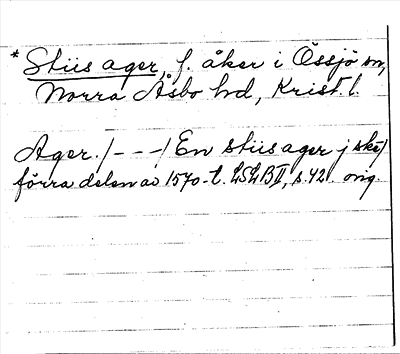 * Stiis ager, f. åker i Össjö sn,
Norra Åsbo hd, Krist. l.
Ager. /---/ En stiis ager j ske/
förra delen av 1570-t. LSLB II, s. 42. orig.